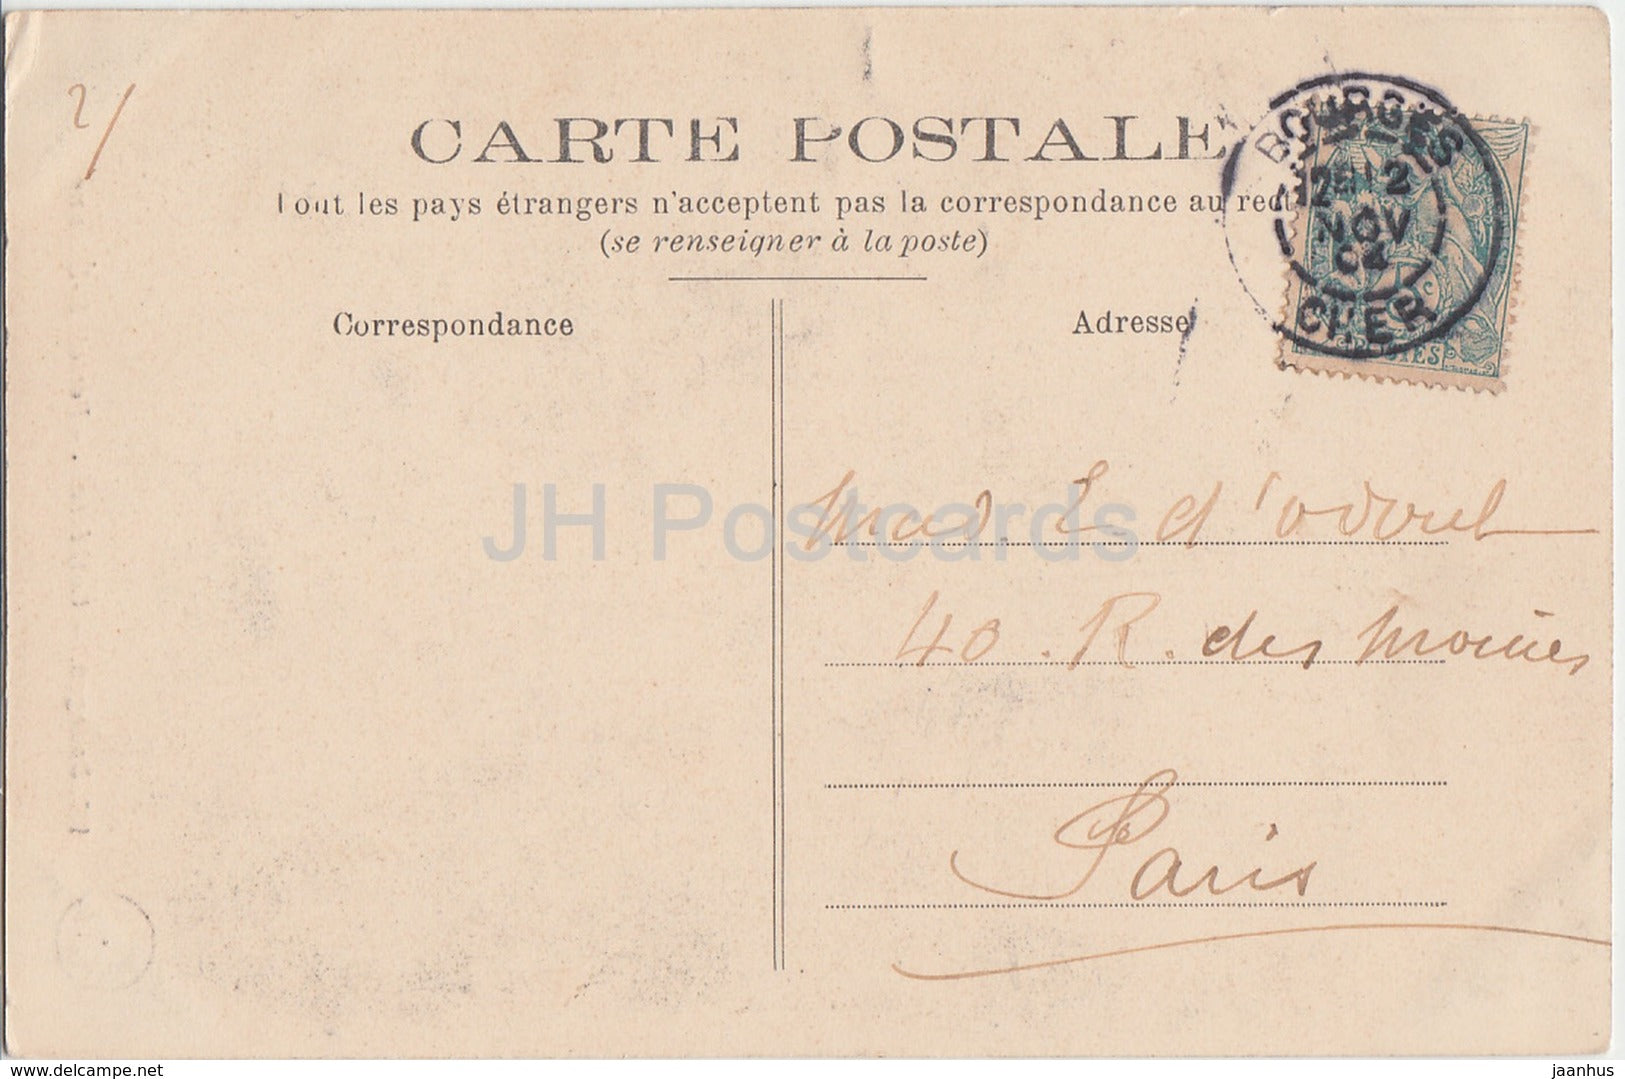 2/
CARTE POSTALE
Tout les pays étrangers n'acceptent pas la correspondance au rect
(se renseigner à la poste)
BOURGES
12
NOV
04
CHER
POSTES
Correspondance
Adresse
JH Postcards
Mad. E d'
40. R. des Moines
Paris
www.delcampe.net
jaanhus